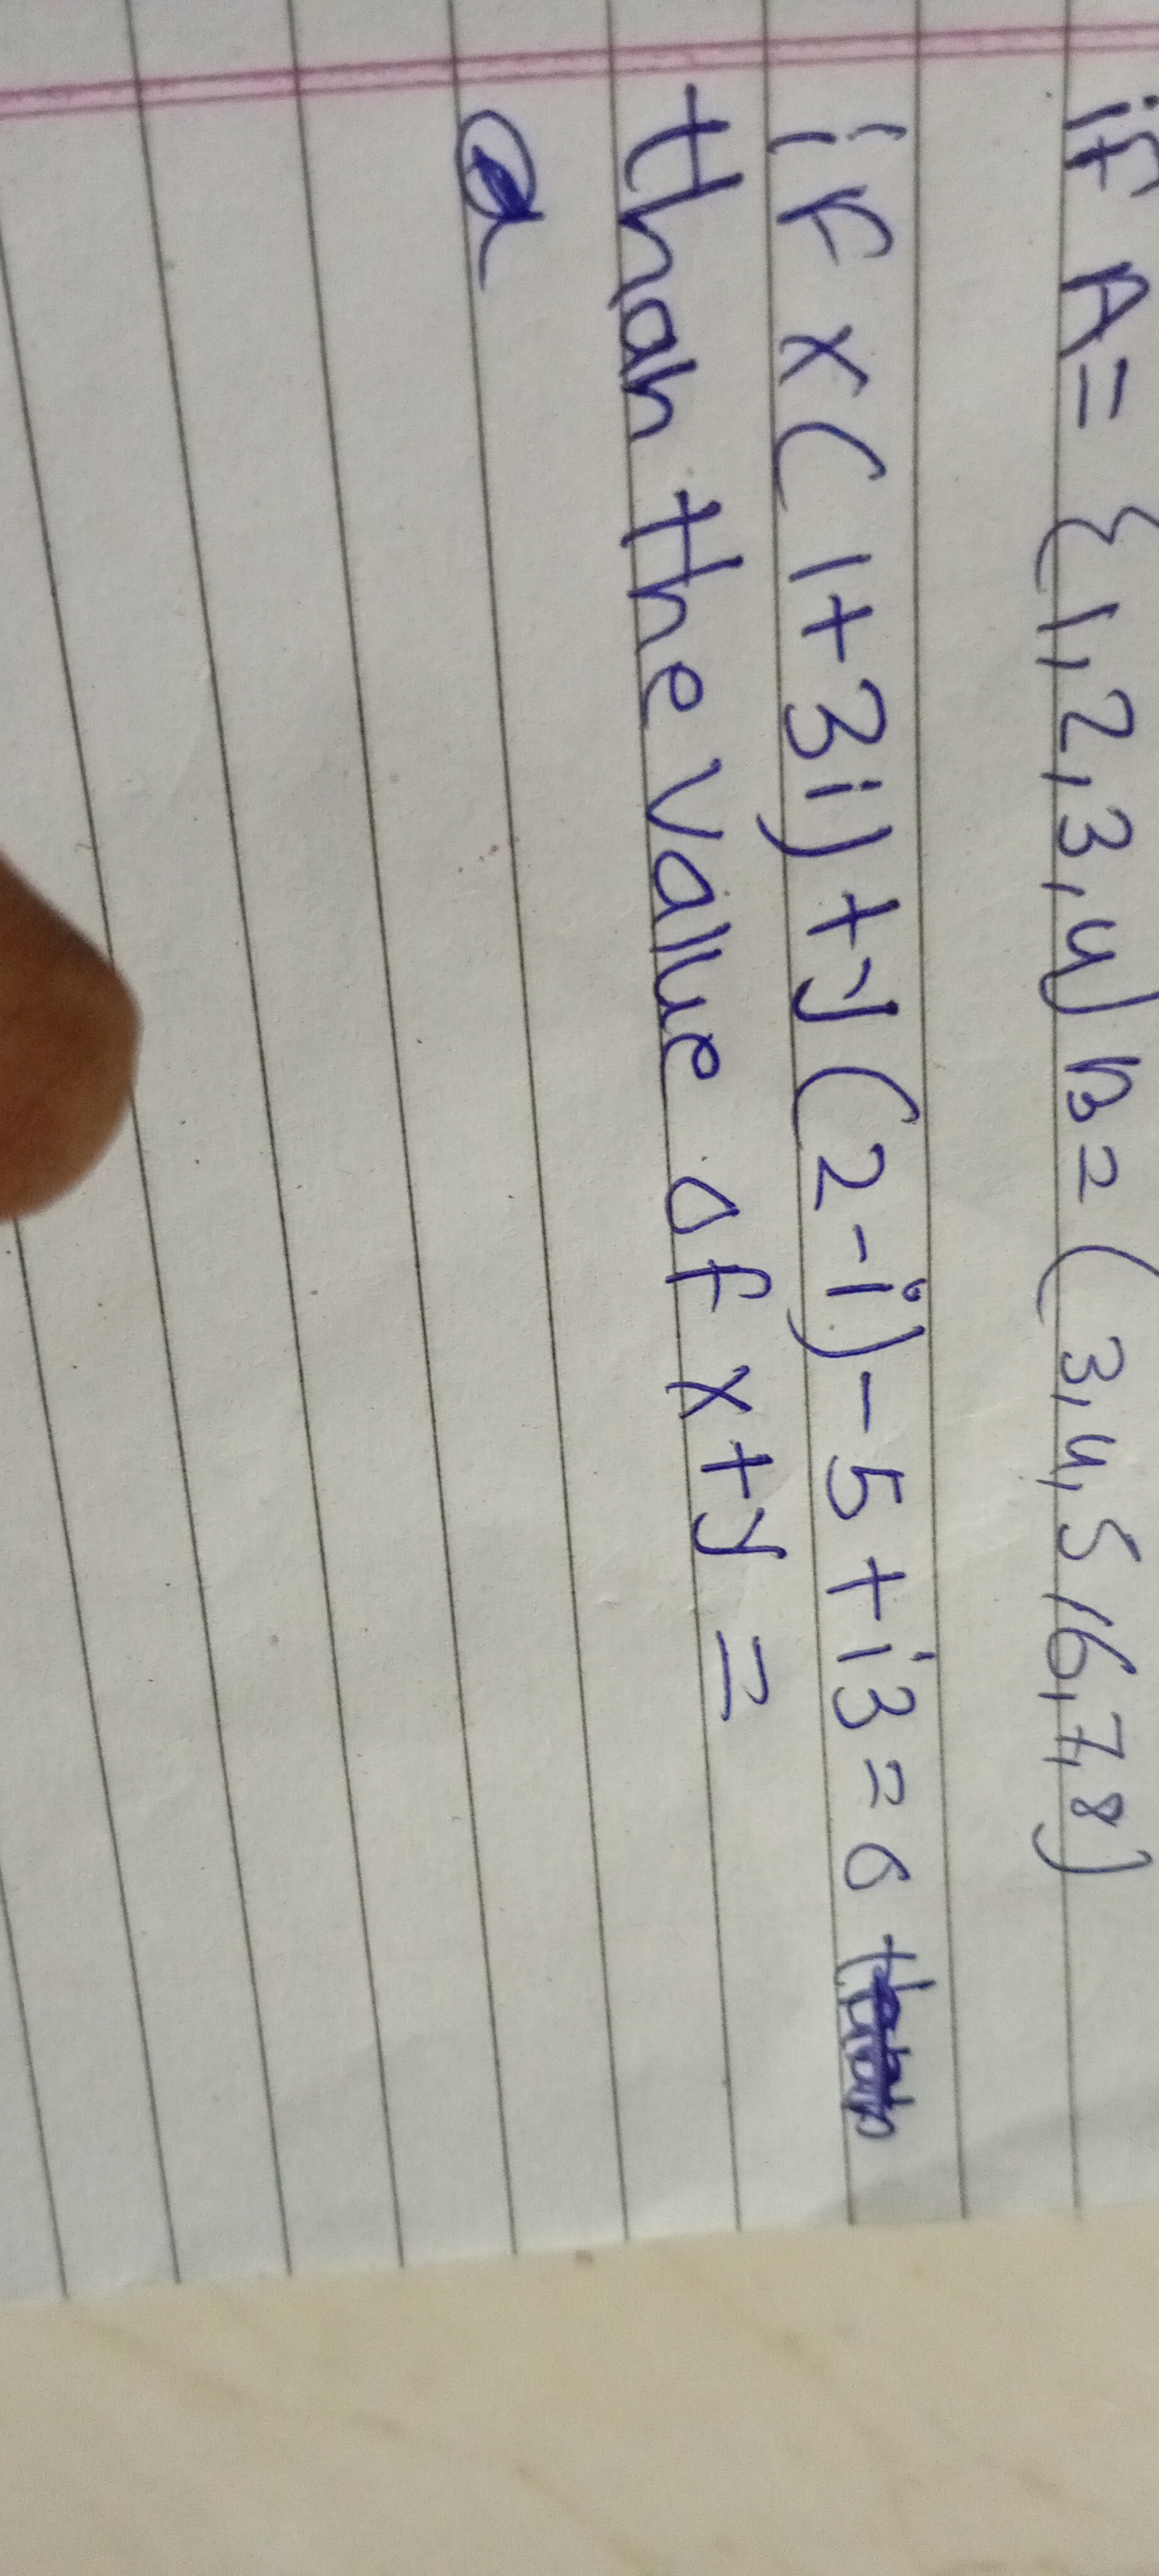 if A = {1,2,3,4) B = (3,4,5,6,7,8)
if x(1+3i)+y(2-i)-5+i3=0
than the value of x+y =